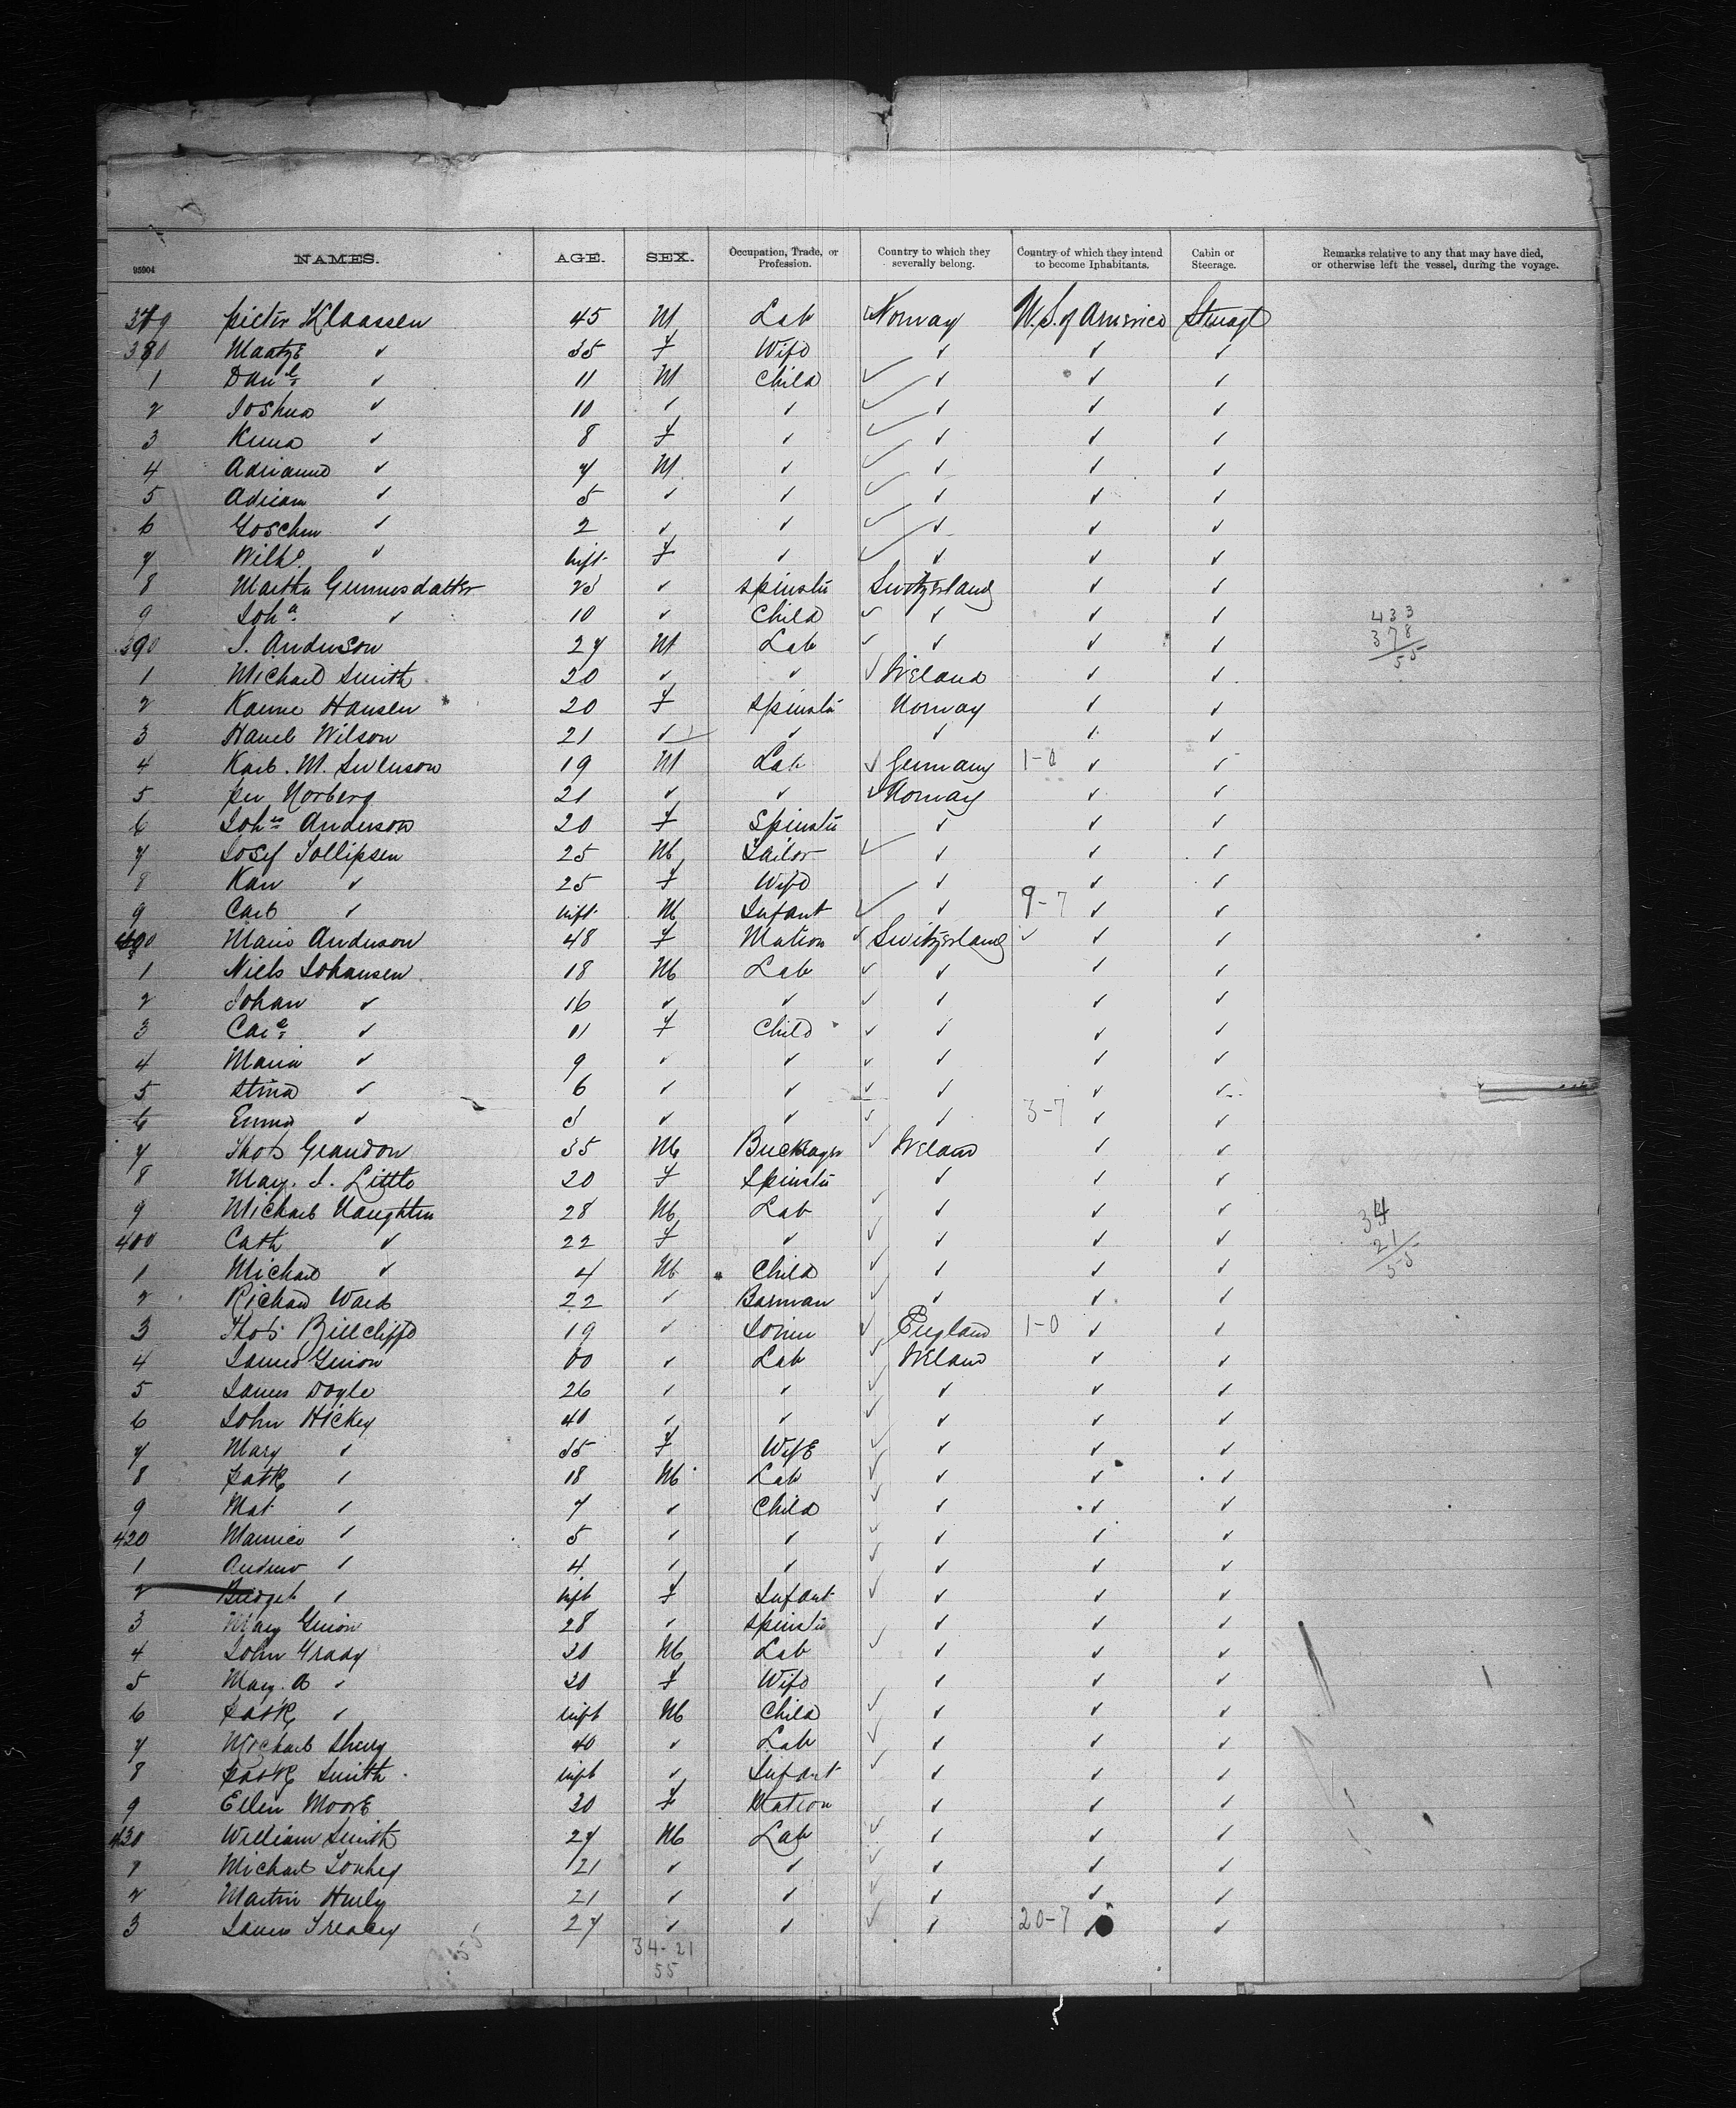 95904 NAMES. AGE. SEX. Occupation, Trade, or Profession. Country to which they severally belong. Country of which they intend to become Inhabitants. Cabin or Steerage. Remarks relative to any that may have died, or otherwise left the vessel, during the voyage.
379 Pieter Klaassen 45 M Lab Norway U.S. of America Steerage
380 Maatze ✓ 35 F Wife ✓ ✓ ✓
1 Danl ✓ 11 M Child ✓ ✓ ✓
2 Joshua ✓ 10 ✓ ✓ ✓ ✓ ✓
3 ✓ 8 F ✓ ✓ ✓ ✓
4 ✓ 7 M ✓ ✓ ✓ ✓
5 Adriam ✓ 5 ✓ ✓ ✓ ✓ ✓
6 Goschen ✓ 2 ✓ ✓ ✓ ✓ ✓
7 Wilhe ✓ inft F ✓ ✓ ✓ ✓
8 Martha Gunnusdatter ✓ spinster Switzerland ✓ ✓
9 Joha ✓ 10 ✓ Child ✓ ✓ ✓ 433
390 J. Anderson 27 M Lab ✓ ✓ ✓ 378
1 Michael Smith 20 ✓ ✓ Ireland ✓ ✓ 55
2 Hansen 20 F spinster Norway ✓ ✓
3 Wilson 21 ✓ ✓ ✓ ✓ ✓
4 Karl. M. Swenson 19 M Lab Germany 1-0 ✓ ✓
5 per Norberg 21 ✓ ✓ Norway ✓ ✓
6 Johs Anderson 20 F Spinster ✓ ✓ ✓
7 Josef Tollipsen 25 M Tailor ✓ ✓ ✓
8 Kari ✓ 25 F Wife ✓ ✓ ✓
9 Carl ✓ inft M Infant ✓ 9-7 ✓ ✓
400 Maria Anderson 48 F Matron Switzerland ✓ ✓
1 Niels Johansen 18 M Lab ✓ ✓ ✓
2 Johan ✓ 16 ✓ ✓ ✓ ✓ ✓
3 Care ✓ 11 F Child ✓ ✓ ✓
4 Maria ✓ 9 ✓ ✓ ✓ ✓ ✓
5 Stina ✓ 6 ✓ ✓ ✓ ✓ ✓
6 Emma ✓ 3 ✓ ✓ ✓ 3-7 ✓ ✓
7 Thos Grandon 35 M Ireland ✓ ✓
8 Mary. J. Little 20 F Spinster ✓ ✓ ✓
9 Michael Naughten 28 M Lab ✓ ✓ ✓ 34
400 Cath ✓ 22 F ✓ ✓ ✓ ✓ 21
1 Michael ✓ 4 M Child ✓ ✓ ✓ 55
2 Richard Ward 22 ✓ Barman ✓ ✓ ✓
3 Thos Billcliffe 19 ✓ Joiner England 1-0 ✓ ✓
4 James Grion 60 ✓ Lab Ireland ✓ ✓
5 James Doyle 26 ✓ ✓ ✓ ✓ ✓
6 John Hickey 40 ✓ ✓ ✓ ✓ ✓
7 Mary ✓ 35 F Wife ✓ ✓ ✓
8 Patk ✓ 18 M Lab ✓ ✓ ✓
9 Mat ✓ 7 ✓ Child ✓ ✓ ✓
420 Maurice ✓ 5 ✓ ✓ ✓ ✓ ✓
1 Andrew ✓ 4 ✓ ✓ ✓ ✓ ✓
2 Bridget ✓ inft F Infant ✓ ✓ ✓
3 Mary Grion 28 ✓ spinster ✓ ✓ ✓
4 John Grady 30 M Lab ✓ ✓ ✓
5 Mary. A ✓ 30 F Wife ✓ ✓ ✓
6 Patk ✓ inft M Child ✓ ✓ ✓
7 Michael Sherry 40 ✓ Lab ✓ ✓ ✓
8 Patk Smith inft ✓ Infant ✓ ✓ ✓
9 Ellen Moore 30 F Matron ✓ ✓ ✓
430 William Smith 27 M Lab ✓ ✓ ✓
1 Michael 21 ✓ ✓ ✓ ✓ ✓
2 Martin Hurly 21 ✓ ✓ ✓ ✓ ✓
3 James Treacy 27 ✓ ✓ ✓ 20-7 ✓ ✓
34-21
55
55